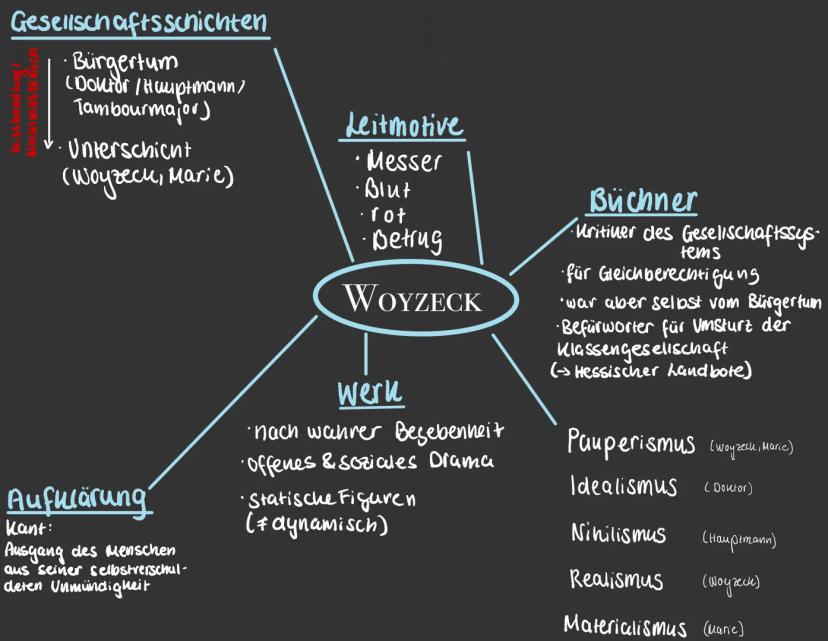 Gesellschaftsschichten
Misshandlung/
Machtmissbrauch
· Bürgertum
(Doktor/Hauptmann/
Tambourmajor)
· Unterschicht
(Woyzeck, Marie)
Leitmotive
· Messer
· Blut
· rot
· Betrug
Büchner
· Kritiker des Gesellschaftssys-
tems
· für Gleichberechtigung
· war aber selbst vom Bürgertum
· Befürworter für Umsturz der
Klassengesellschaft
(→ Hessischer Landbote)
WOYZECK
Werk
· nach wahrer Begebenheit
· offenes & soziales Drama
· statische Figuren
(≠ dynamisch)
Aufklärung
Kant:
Ausgang des Menschen
aus seiner selbstverschul-
deten Unmündigkeit
Pauperismus (Woyzeck, Marie)
Idealismus (Doktor)
Nihilismus (Hauptmann)
Realismus (Woyzeck)
Materialismus (Marie)